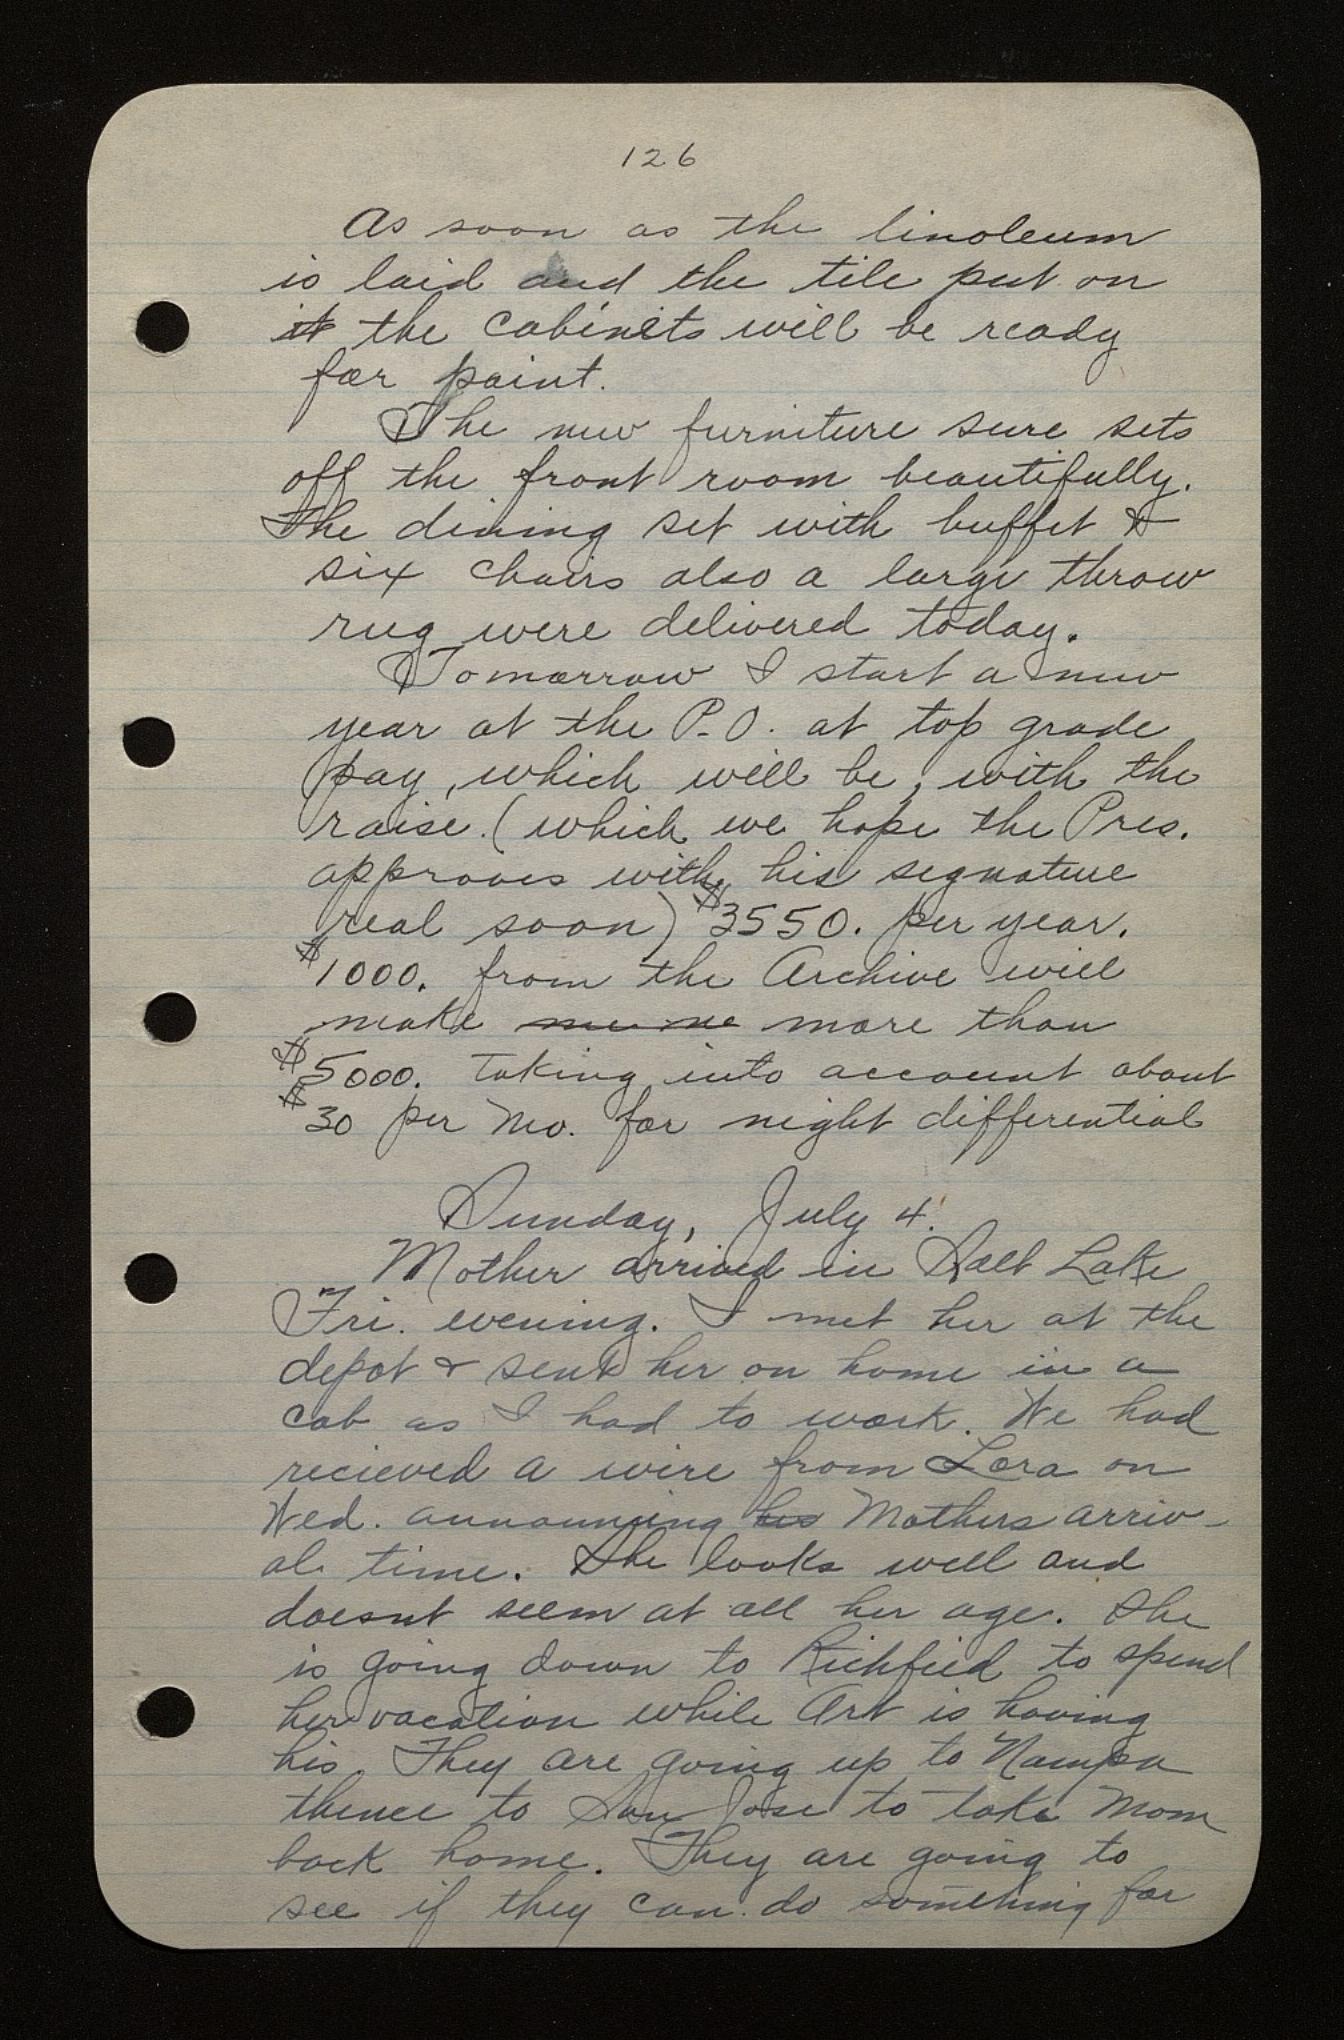 126
As soon as the linoleum
is laid and the tile put on
it the cabinets will be ready
for paint.
The new furniture sure sets
off the front room beautifully.
The dining set with buffet &
six chairs also a large throw
rug were delivered today.
Tomorrow I start a new
year at the P.O. at top grade
pay, which will be, with the
raise (which we hope the Pres.
approves with his signature
real soon) $3550. per year.
$1000. from the Archive will
make me more than
$5000. taking into account about
$30 per Mo. for night differential
Sunday, July 4.
Mother arrived in Salt Lake
Fri. evening. I met her at the
depot & sent her on home in a
cab as I had to work. We had
recieved a wire from Lora on
Wed. announcing her Mothers arriv-
al time. She looks well and
doesnt seem at all her age. She
is going down to Richfied to spend
her vacation while Art is having
his. They are going up to Nampa
thence to San Jose to take Mom
back home. They are going to
see if they can do something for